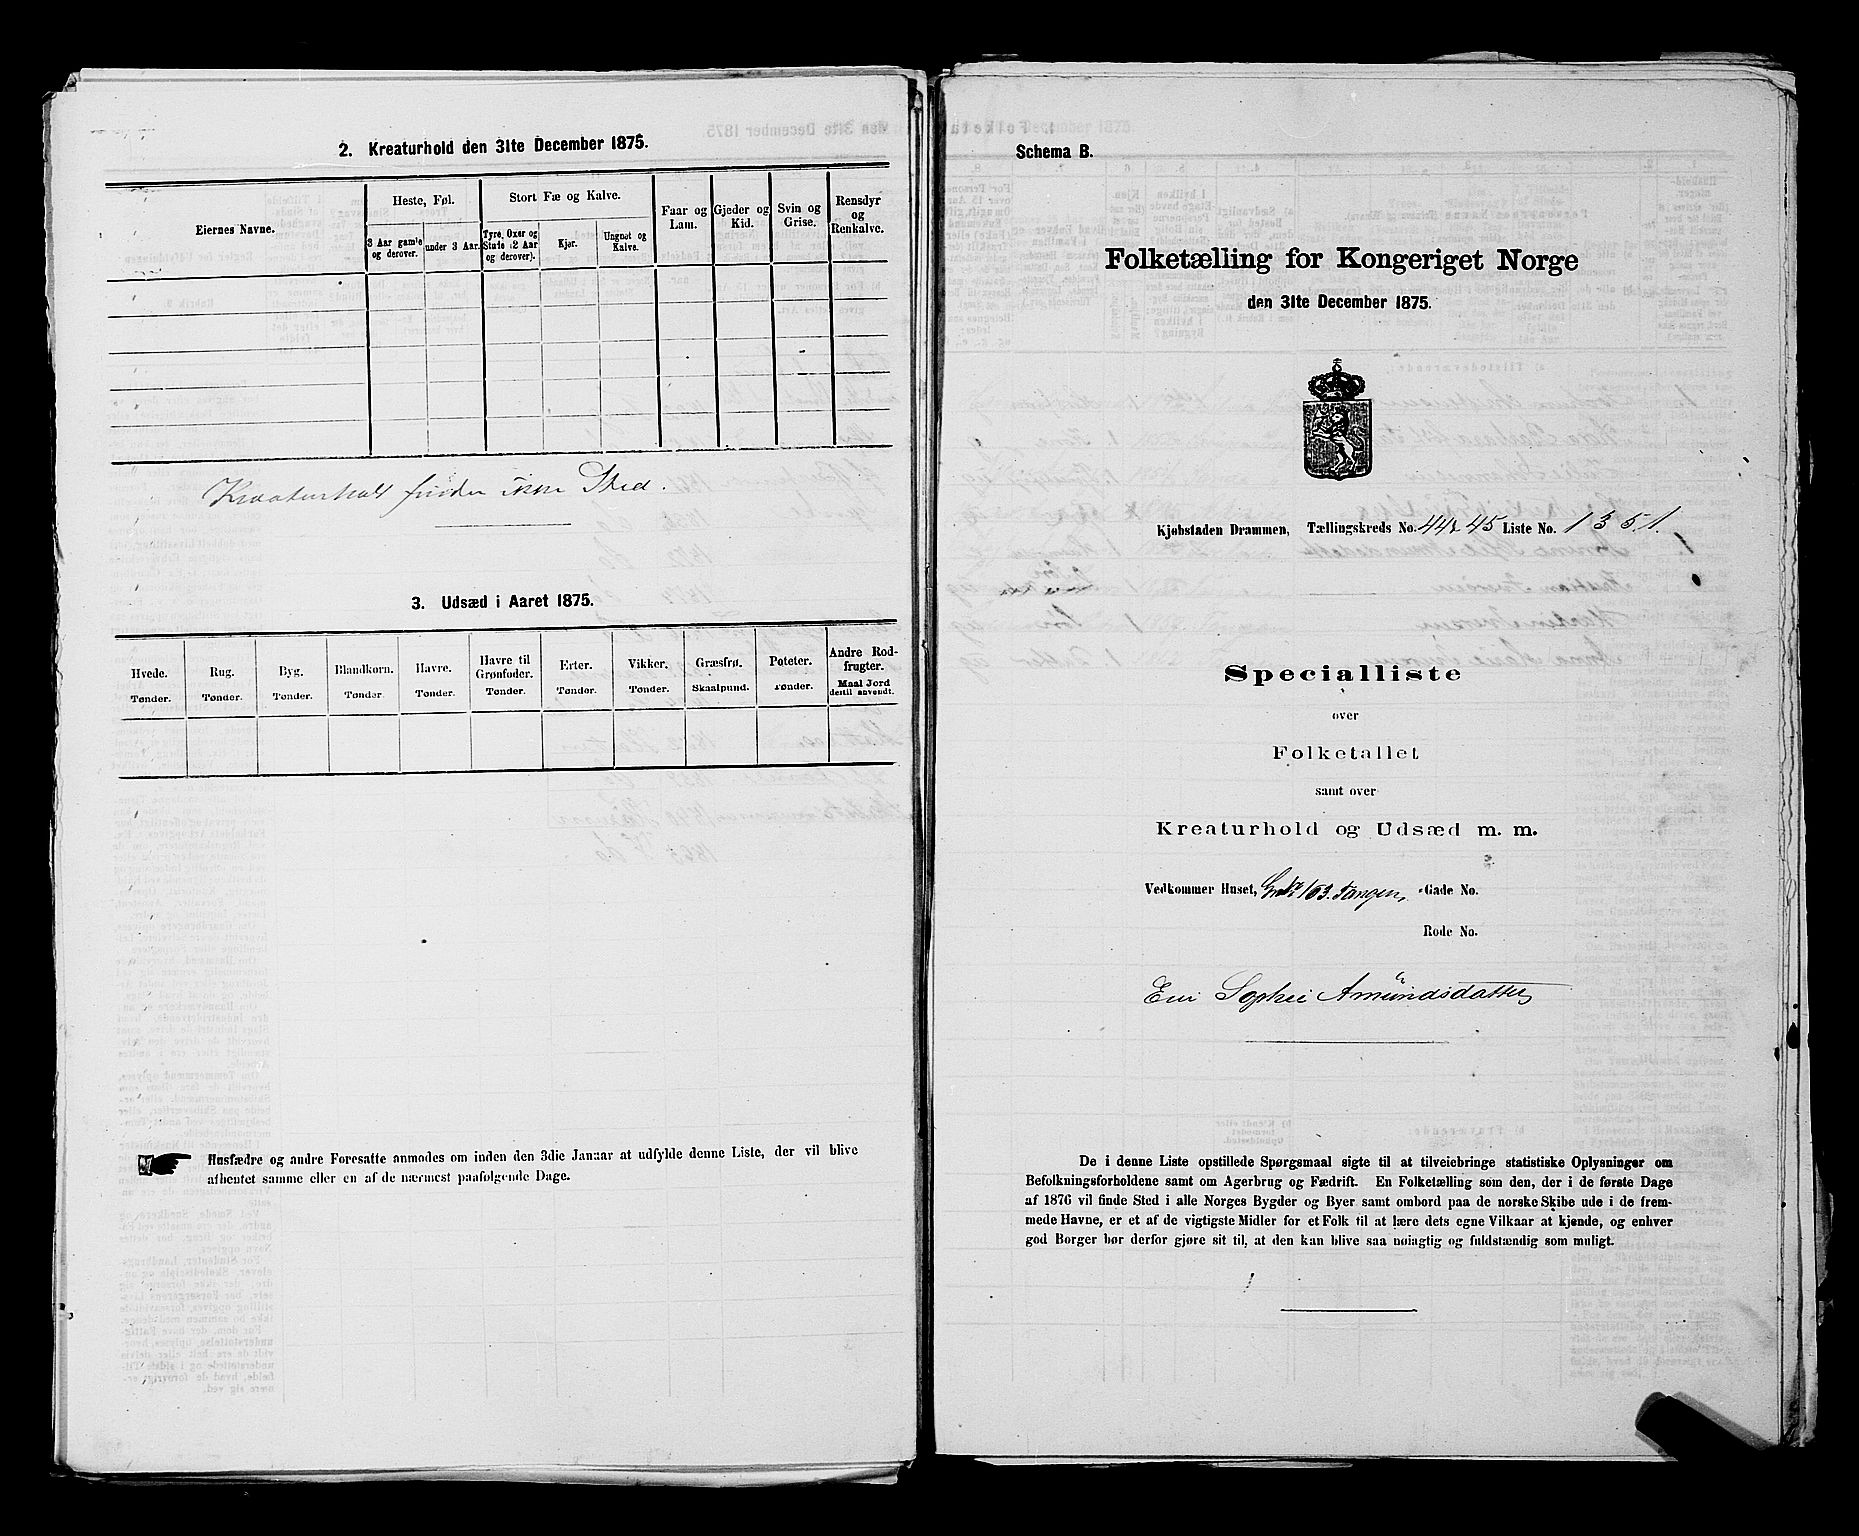 2. Kreaturhold den 31te December 1875.
Eiernes Navne.
Heste, Føl.
Stort Fæ og Kalve.
Faar og Lam.
Gjeder og Kid.
Svin og Grise.
Rensdyr og Renkalve.
3 Aar gamle og derover.
under 3 Aar.
Tyre, Oxer og Stude (2 Aar og derover).
Kjør.
Ungnøt og Kalve.
Kreaturhold finder ikke Sted.
3. Udsæd i Aaret 1875.
Hvede.
Rug.
Byg.
Blandkorn.
Havre.
Havre til Grønfoder.
Erter.
Vikker.
Græsfrø.
Poteter.
Andre Rodfrugter.
Tønder.
Tønder.
Tønder.
Tønder.
Tønder.
Tønder.
Tønder.
Tønder.
Skaalpund.
Tønder.
Maal Jord dertil anvendt.
Husfædre og andre Foresatte anmodes om inden den 3die Januar at udfylde denne Liste, der vil blive
afhentet samme eller en af de nærmest paafølgende Dage.
Schema B.
Folketælling for Kongeriget Norge
den 31te December 1875.
Kjøbstaden Drammen, Tællingskreds No. 44 & 45 Liste No. 1351.
Specialliste
over
Folketallet
samt over
Kreaturhold og Udsæd m. m.
Vedkommer Huset, 163. Tangen, -Gade No.
Rode No.
Sophie Amündsdatter
De i denne Liste opstillede Spørgsmaal sigte til at tilveiebringe statistiske Oplysninger om
Befolkningsforholdene samt om Agerbrug og Fædrift. En Folketælling som den, der i de første Dage
af 1876 vil finde Sted i alle Norges Bygder og Byer samt ombord paa de norske Skibe ude i de frem-
mede Havne, er et af de vigtigste Midler for et Folk til at lære dets egne Vilkaar at kjende, og enhver
god Borger bør derfor gjøre sit til, at den kan blive saa nøiagtig og fuldstændig som muligt.